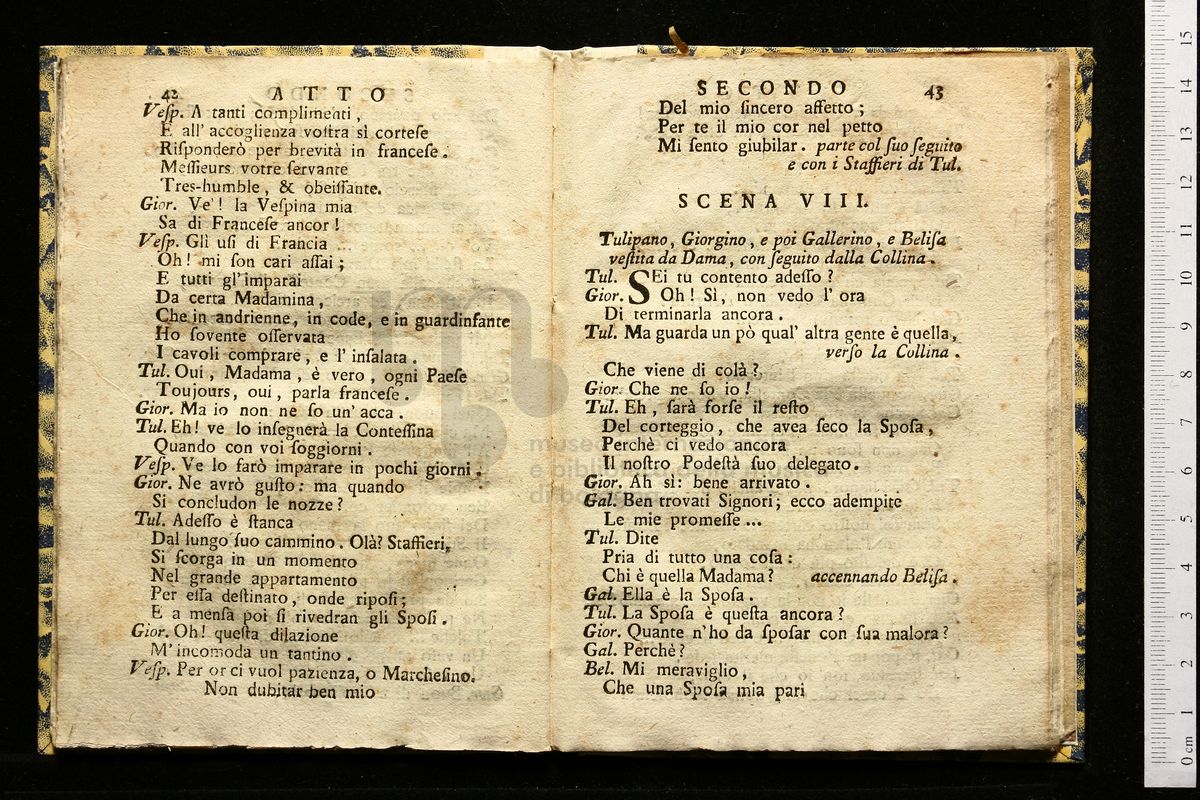 42 ATTO
Veſp. A tanti complimenti,
E all' accoglienza voſtra sì corteſe
Riſponderò per brevità in franceſe.
Meſſieurs votre ſervante
Tres-humble, & obeiſſante.
Gior. Ve'! la Veſpina mia
Sa di Franceſe ancor!
Veſp. Gli uſi di Francia
Oh! mi ſon cari aſſai;
E tutti gl'imparai
Da certa Madamina,
Che in andrienne, in code, e in guardinfante
Ho ſovente oſſervata
I cavoli comprare, e l'inſalata.
Tul. Oui, Madama, è vero, ogni Paeſe
Toujours, oui, parla franceſe.
Gior. Ma io non ne ſo un'acca.
Tul. Eh! ve lo inſegnerà la Conteſſina
Quando con voi ſoggiorni.
Veſp. Ve lo farò imparare in pochi giorni.
Gior. Ne avrò guſto: ma quando
Si concludon le nozze?
Tul. Adeſſo è ſtanca
Dal lungo ſuo cammino. Olà? Staffieri,
Si ſcorga in un momento
Nel grande appartamento
Per eſſa deſtinato, onde ripoſi;
E a menſa poi ſi rivedran gli Spoſi.
Gior. Oh! queſta dilazione
M'incomoda un tantino.
Veſp. Per or ci vuol pazienza, o Marcheſino.
Non dubitar ben mio
SECONDO 43
Del mio ſincero affetto;
Per te il mio cor nel petto
Mi ſento giubilar. parte col ſuo ſeguito
e con i Staffieri di Tul.
SCENA VIII.
Tulipano, Giorgino, e poi Gallerino, e Beliſa
veſtita da Dama, con ſeguito dalla Collina.
Tul. SEi tu contento adeſſo?
Gior. Oh! Sì, non vedo l'ora
Di terminarla ancora.
Tul. Ma guarda un pò qual' altra gente è quella,
verſo la Collina.
Che viene di colà?
Gior. Che ne ſo io!
Tul. Eh, ſarà forſe il reſto
Del corteggio, che avea ſeco la Spoſa,
Perchè ci vedo ancora
Il noſtro Podeſtà ſuo delegato.
Gior. Ah sì: bene arrivato.
Gal. Ben trovati Signori; ecco adempite
Le mie promeſſe...
Tul. Dite
Pria di tutto una coſa:
Chi è quella Madama? accennando Beliſa.
Gal. Ella è la Spoſa.
Tul. La Spoſa è queſta ancora?
Gior. Quante n'ho da ſpoſar con ſua malora?
Gal. Perchè?
Bel. Mi meraviglio,
Che una Spoſa mia pari
0 cm 1 2 3 4 5 6 7 8 9 10 11 12 13 14 15